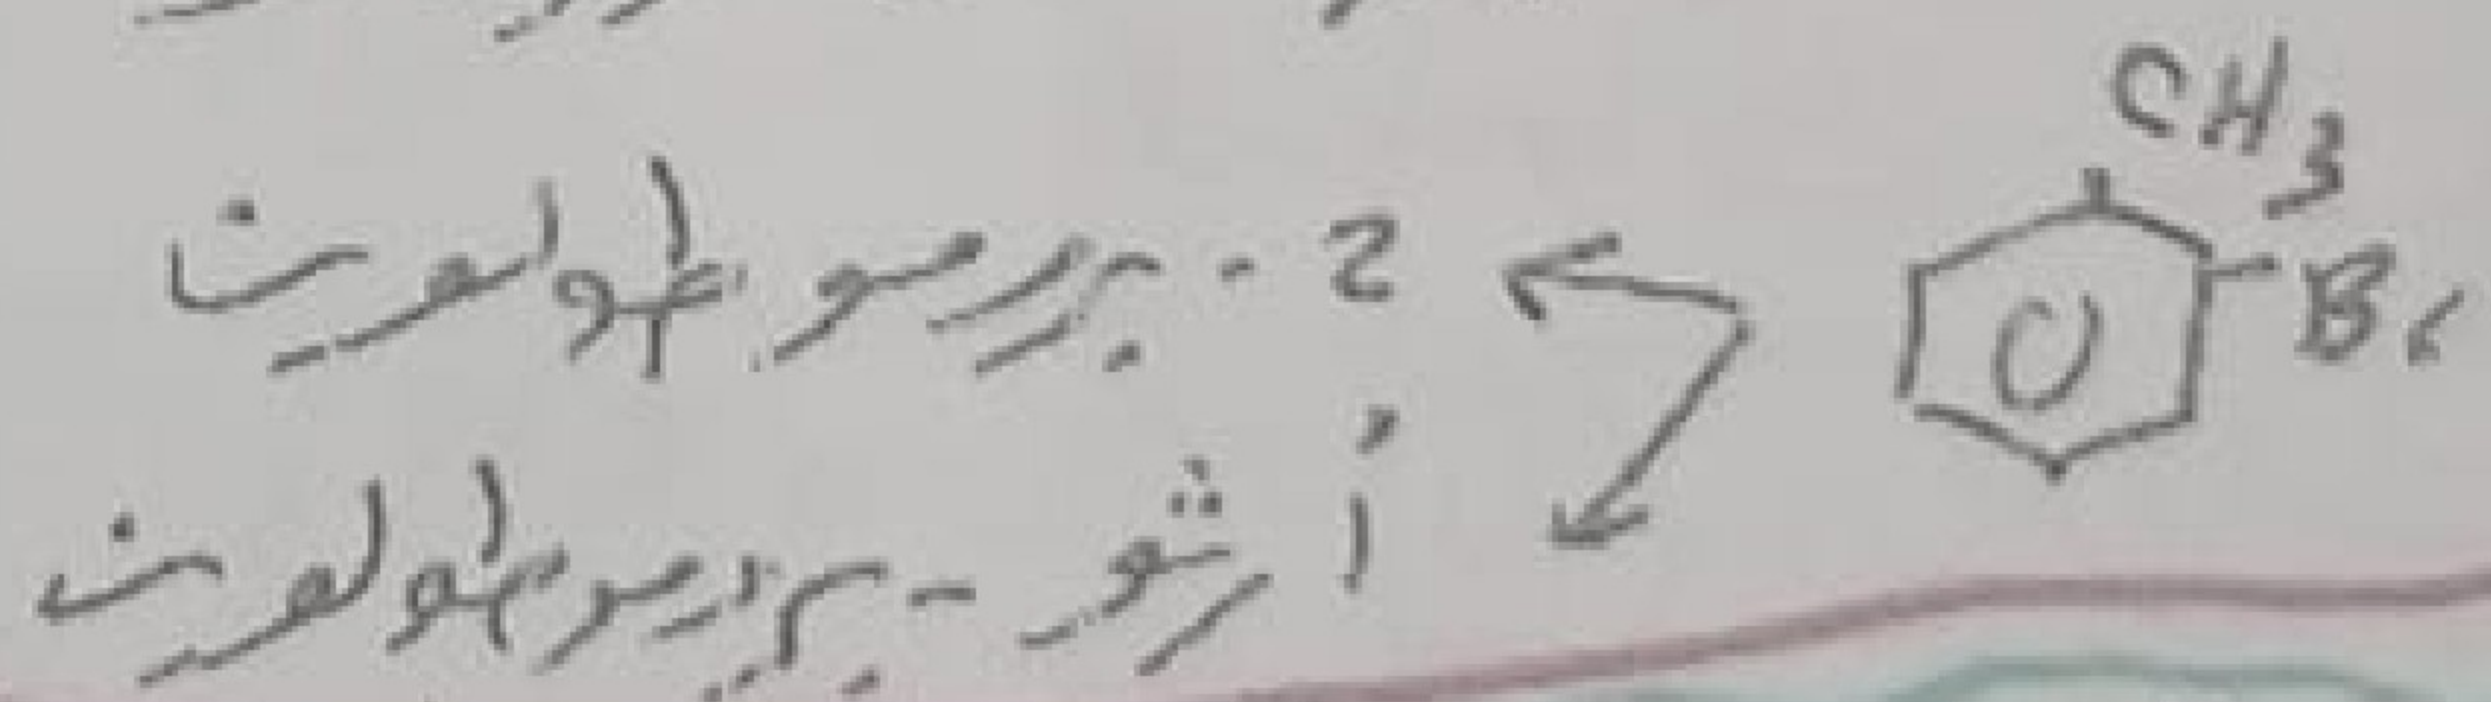 CH3
Br
2 - برومو طولوين
أرثو - برومو طولوين